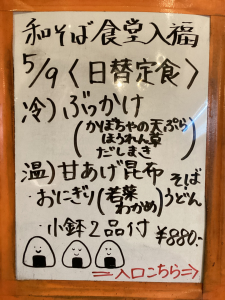 和そば食堂入福
5/9〈日替定食〉
冷)ぶっかけ
(かぼちゃの天ぷら
ほうれん草
だしまき)
温)甘あげ昆布そば
うどん
・おにぎり(若菜
わかめ)
・小鉢2品付 ¥880-
⇒入口こちら⇒